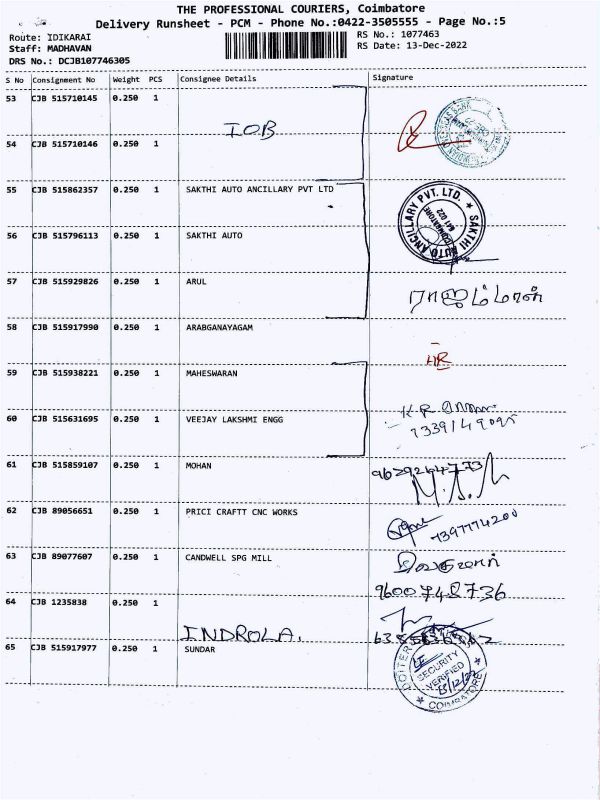 THE PROFESSIONAL COURIERS, Coimbatore
Delivery Runsheet - PCM - Phone No.:0422-3505555 - Page No.:5
Route: IDIKARAI
RS No.: 1077463
Staff: MADHAVAN
RS Date: 13-Dec-2022
DRS No.: DCJB107746305
S No Consignment No Weight PCS Consignee Details Signature
53 CJB 515710145 0.250 1
IOB
54 CJB 515710146 0.250 1
55 CJB 515862357 0.250 1 SAKTHI AUTO ANCILLARY PVT LTD
SAKTHI AUTO ANCILLARY PVT. LTD.
COIMBATORE
641 022
56 CJB 515796113 0.250 1 SAKTHI AUTO
57 CJB 515929826 0.250 1 ARUL
58 CJB 515917990 0.250 1 ARABGANAYAGAM
59 CJB 515938221 0.250 1 MAHESWARAN
60 CJB 515631695 0.250 1 VEEJAY LAKSHMI ENGG
K.R
61 CJB 515859107 0.250 1 MOHAN
62 CJB 89056651 0.250 1 PRICI CRAFTT CNC WORKS
7397774200
63 CJB 89077607 0.250 1 CANDWELL SPG MILL
9600742736
64 CJB 1235838 0.250 1
INDROLA.
65 CJB 515917977 0.250 1 SUNDAR
SECURITY
VERIFIED
13/12/22
COIMBATORE